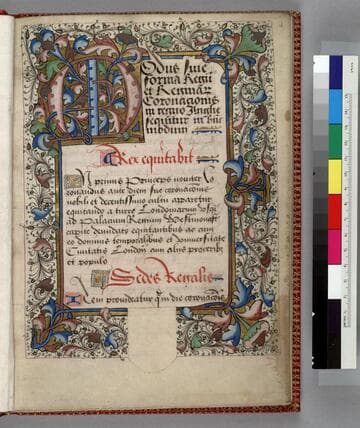 Modus siue
forma Regū
et Reginarū
Coronacionis
in regno Anglie
sequitur in hūc
modum
Rex equitabit
In primis Princeps noviter co
ronandus ante diem sue coronacionis
nobili et decentissimo cultu apparetur
equitando a turre Londoniarum vsq̄
ad Palacium Regium Westmonast̄
capite denudato equitantibus ac cum
eo dominis temporalibus et
Ciuitatis London cum aliis proceribꝰ
et populo
Sedes Regalis
Item prouideatur qd̄ in die coronacōis